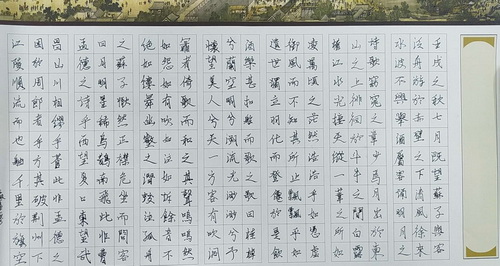 壬戌之秋七月既望蘇子與客
泛舟游於赤壁之下清風徐來
水波不興舉酒屬客誦明月之
詩歌窈窕之章少焉月出於東
山之上徘徊於斗牛之間白露
橫江水光接天縱一葦之所如
凌萬頃之茫然浩浩乎如馮虛
御風而不知其所止飄飄乎如
遺世獨立羽化而登仙於是飲
酒樂甚扣舷而歌之歌曰桂棹
兮蘭槳擊空明兮溯流光渺渺兮予
懷望美人兮天一方客有吹洞
簫者倚歌而和之其聲嗚嗚然
如怨如慕如泣如訴餘音不
絕如縷舞幽壑之潛蛟泣孤舟
之蘇子愀然正襟危坐而問客
曰月明星稀烏鵲南飛此非曹
孟德之詩乎西望夏口東望武
昌山川相繆乎蒼此非孟德之
困於周郎者乎方其破荊州下
江陵順流而也舳千里旌空